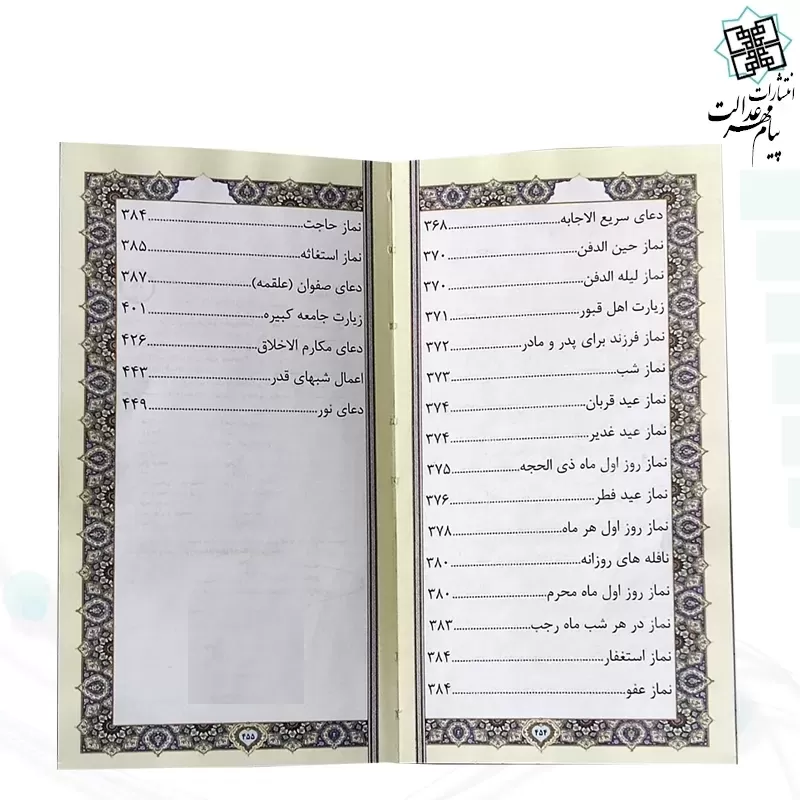 انتشارات
پیام مهر عدالت
دعای سریع الاجابه..........۳۶۸
نماز حین الدفن..........۳۷۰
نماز لیله الدفن..........۳۷۰
زیارت اهل قبور..........۳۷۱
نماز فرزند برای پدر و مادر..........۳۷۲
نماز شب..........۳۷۳
نماز عید قربان..........۳۷۴
نماز عید غدیر..........۳۷۴
نماز روز اول ماه ذی الحجه..........۳۷۵
نماز عید فطر..........۳۷۶
نماز روز اول هر ماه..........۳۷۸
نافله های روزانه..........۳۸۰
نماز روز اول ماه محرم..........۳۸۰
نماز در هر شب ماه رجب..........۳۸۳
نماز استغفار..........۳۸۴
نماز عفو..........۳۸۴
۴۵۴
نماز حاجت..........۳۸۴
نماز استغاثه..........۳۸۵
دعای صفوان (علقمه)..........۳۸۷
زیارت جامعه کبیره..........۴۰۱
دعای مکارم الاخلاق..........۴۲۶
اعمال شبهای قدر..........۴۴۳
دعای نور..........۴۴۹
۴۵۵